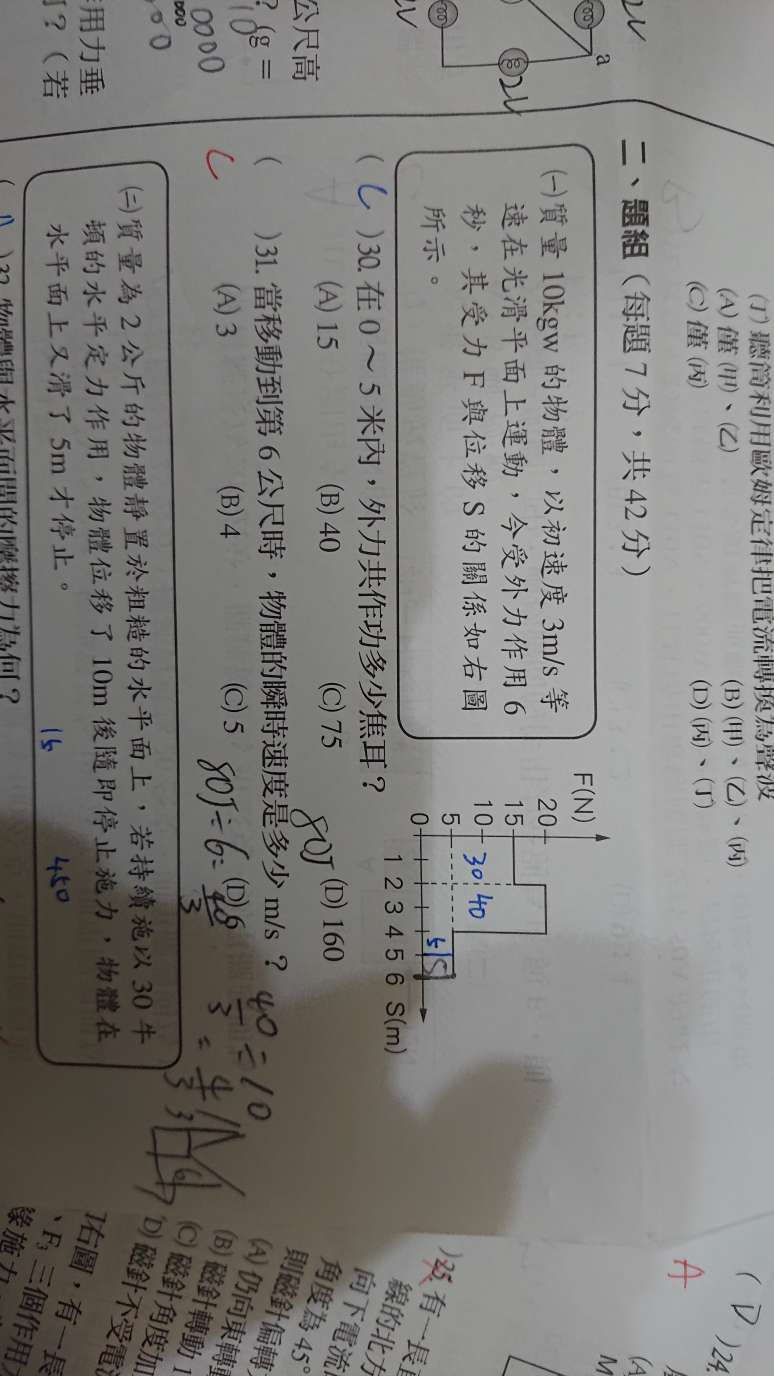 (丁)聽筒利用歐姆定律把電流轉換為聲波
(A)僅(甲)、(乙)
(B)(甲)、(乙)、(丙)
(C)僅(丙)
(D)(丙)、(丁)
二、題組(每題7分,共42分)
(一)質量10kgw的物體,以初速度3m/s等
速在光滑平面上運動,今受外力作用6
秒,其受力F與位移S的關係如右圖
所示。
F(N)
20
15
10
5
0
1 2 3 4 5 6 S(m)
30
40
5
5
(C)30. 在0~5米內,外力共作功多少焦耳?
(A)15
(B)40
(C)75
(D)160
80J
( )31. 當移動到第6公尺時,物體的瞬時速度是多少m/s?
C
(A)3
(B)4
(C)5
(D)6
80J÷6=
40/3
40/3 ÷10
= 4/3
(二)質量為2公斤的物體靜置於粗糙的水平面上,若持續施以30牛
頓的水平定力作用,物體位移了10m後隨即停止施力,物體在
水平面上又滑了5m才停止。
15
450
)32. 物體與水平面間的摩擦力為何?
2V
a
2V
公尺高
?(g=
10
0000
用力垂
?(若
(D)24.
A
)25. 有一長
線的北方
向下電流
角度為45°
則磁針偏轉
(A)仍向東轉
(B)磁針轉動1
(C)磁針角度加
(D)磁針不受電
右圖,有一長
、F₃三個作用
緣施力